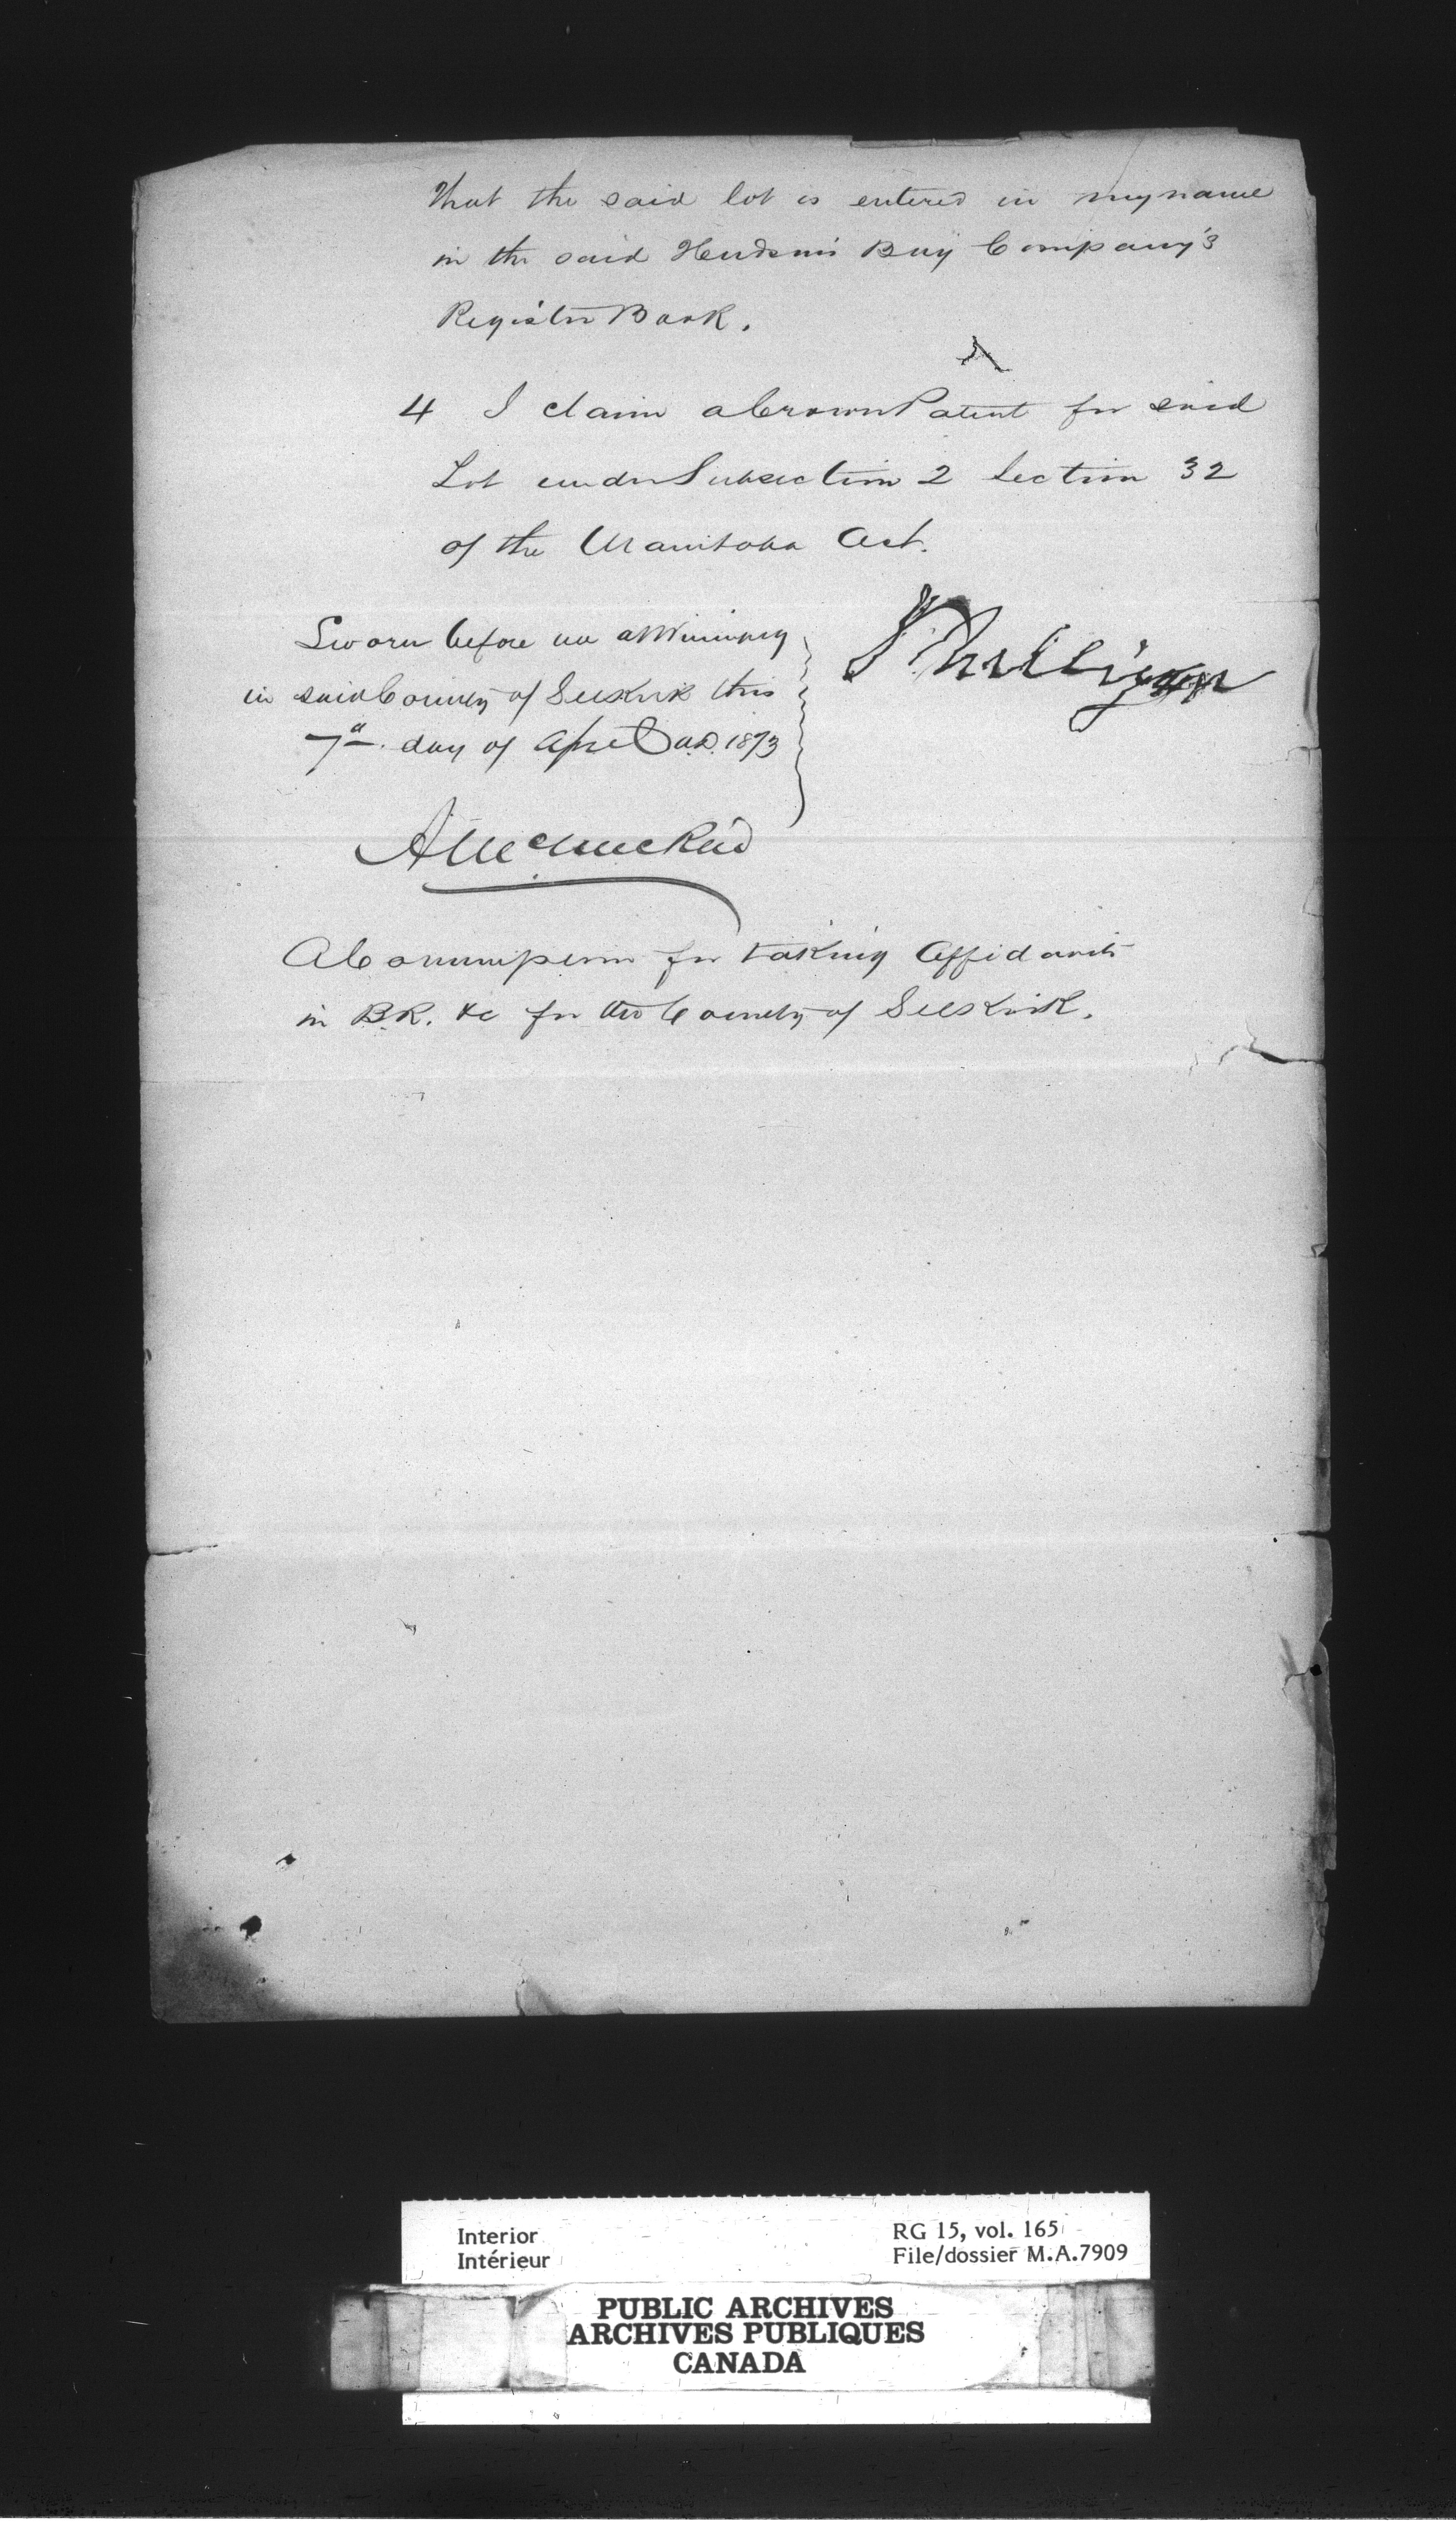 that the said lot is entered in my name
in the said Hudson's Bay Company's
Register Book.
4 I claim a Crown Patent for said
Lot under Subsection 2 Section 32
of the Manitoba Act.
Sworn before me at Winnipeg
in said County of Selkirk this
7th day of April A.D. 1873
A Commissioner for taking Affidavits
in B.R. &c for the County of Selkirk.
Interior
Intérieur
RG 15, vol. 165
File/dossier M.A.7909
PUBLIC ARCHIVES
ARCHIVES PUBLIQUES
CANADA